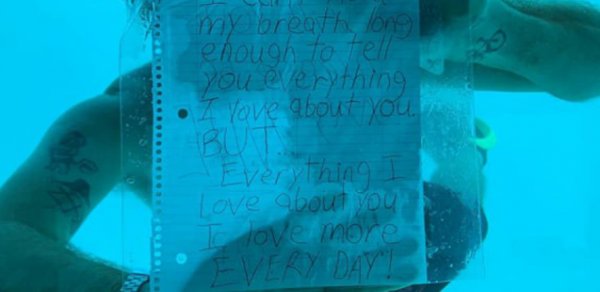 I can't
my breath long
enough to tell
you everything
I love about you.
BUT
Everything I
Love about you
I love more
EVERY DAY!